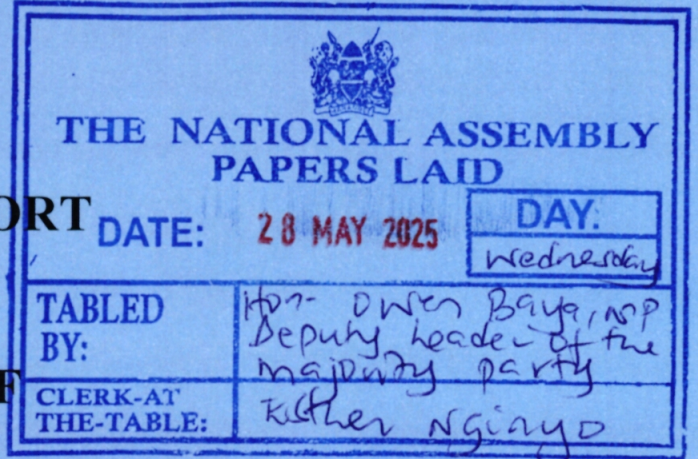 THE NATIONAL ASSEMBLY
PAPERS LAID
ORT
DATE: 28 MAY 2025
DAY:
Wednesday
TABLED BY:
Hon. Owen Baya, MP
Deputy Leader of the
majority party
F
CLERK-AT
THE-TABLE:
Esther Nginyo